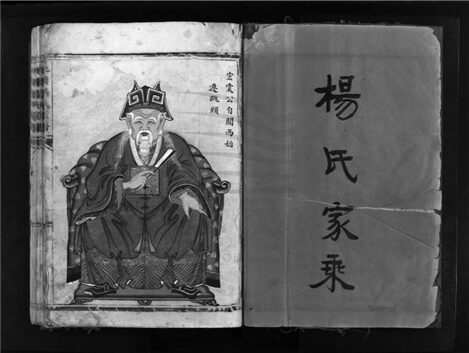 楊氏家乘
宏震公自關西始
遷跳頭